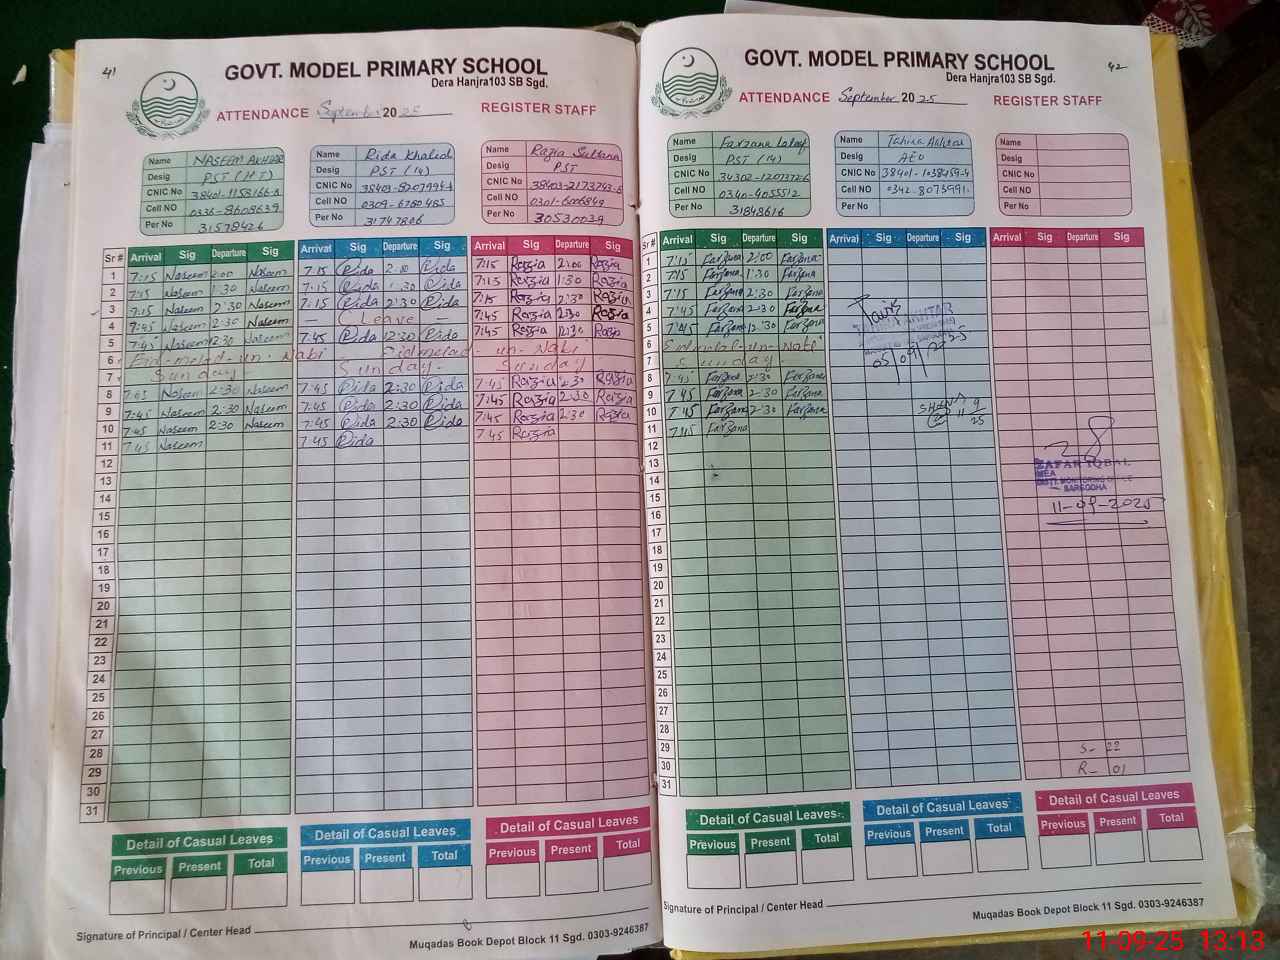 41
GOVT. MODEL PRIMARY SCHOOL
Dera Hanjra103 SB Sgd.
ATTENDANCE September 2025 REGISTER STAFF
Name NASEEM AKHTAR
Desig PST (HT)
CNIC No 38401-1158166-8
Cell NO 0336-8608639
Per No 31578426
Name Rida Khalid
Desig PST (14)
CNIC No
Cell NO 0309-6780485
Per No 31747806
Name Razia Sultana
Desig PST
CNIC No 38403-2173743-8
Cell NO 0301-6006849
Per No 30530039
Sr # Arrival Sig Departure Sig Arrival Sig Departure Sig Arrival Sig Departure Sig
1 7:15 Naseem 2:00 Naseem 7:15 Rida 2:00 Rida 7:15 Razia 2:00 Razia
2 7:15 Naseem 1:30 Naseem 7:15 Rida 1:30 Rida 7:15 Razia 1:30 Razia
3 7:15 Naseem 2:30 Naseem 7:15 Rida 2:30 Rida 7:15 Razia 2:30 Razia
4 7:45 Naseem 2:30 Naseem — Leave — 7:45 Razia 2:30 Razia
5 7:45 Naseem 12:30 Naseem 7:45 Rida 12:30 Rida 7:45 Razia 12:30 Razia
6 Eid-melad-un-Nabi Eidmelad-un-Nabi
7 Sunday Sunday Sunday
8 7:45 Naseem 2:30 Naseem 7:45 Rida 2:30 Rida 7:45 Razia 2:30 Razia
9 7:45 Naseem 2:30 Naseem 7:45 Rida 2:30 Rida 7:45 Razia 2:30 Razia
10 7:45 Naseem 2:30 Naseem 7:45 Rida 2:30 Rida 7:45 Razia 2:30 Razia
11 7:45 Naseem 7:45 Rida 7:45 Razia
12
13
14
15
16
17
18
19
20
21
22
23
24
25
26
27
28
29
30
31
Detail of Casual Leaves Detail of Casual Leaves Detail of Casual Leaves
Previous Present Total Previous Present Total Previous Present Total
Signature of Principal / Center Head
Muqadas Book Depot Block 11 Sgd. 0303-9246387
42
GOVT. MODEL PRIMARY SCHOOL
Dera Hanjra103 SB Sgd.
ATTENDANCE September 2025 REGISTER STAFF
Name Farzana Lataf
Desig PST (14)
CNIC No 34302-1207372-6
Cell NO 0340-4055512
Per No 31848616
Name Tahira Akhtar
Desig AEO
CNIC No 38401-1038459-4
Cell NO 0342-8073991
Per No
Name
Desig
CNIC No
Cell NO
Per No
Sr # Arrival Sig Departure Sig Arrival Sig Departure Sig Arrival Sig Departure Sig
1 7:15 Farzana 2:00 Farzana
2 7:15 Farzana 1:30 Farzana
3 7:15 Farzana 2:30 Farzana
4 7:45 Farzana 2:30 Farzana
5 7:45 Farzana 12:30 Farzana
AKHTAR
05/09/2025
6 Eidmilad-un-Nabi
7 Sunday
8 7:45 Farzana 2:30 Farzana
9 7:45 Farzana 2:30 Farzana
10 7:45 Farzana 2:30 Farzana
11 9 25
11 7:45 Farzana
12
ZAFAR IQBAL
MEA
SARGODHA
11-09-2025
13
14
15
16
17
18
19
20
21
22
23
24
25
26
27
28
29
S- 22
30
R- 01
31
Detail of Casual Leaves Detail of Casual Leaves Detail of Casual Leaves
Previous Present Total Previous Present Total Previous Present Total
Signature of Principal / Center Head
Muqadas Book Depot Block 11 Sgd. 0303-9246387
11-09-25 13:13